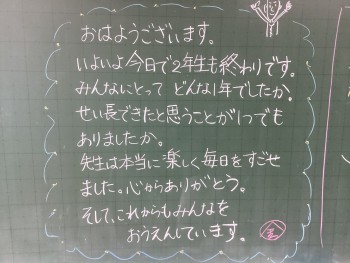 おはようございます。
いよいよ今日で2年生も終わりです。
みんなにとって どんな1年でしたか。
せい長できたと思うことが1つでも
ありましたか。
先生は本当に楽しく毎日をすごせ
ました。心からありがとう。
そして、これからもみんなを
おうえんしています。